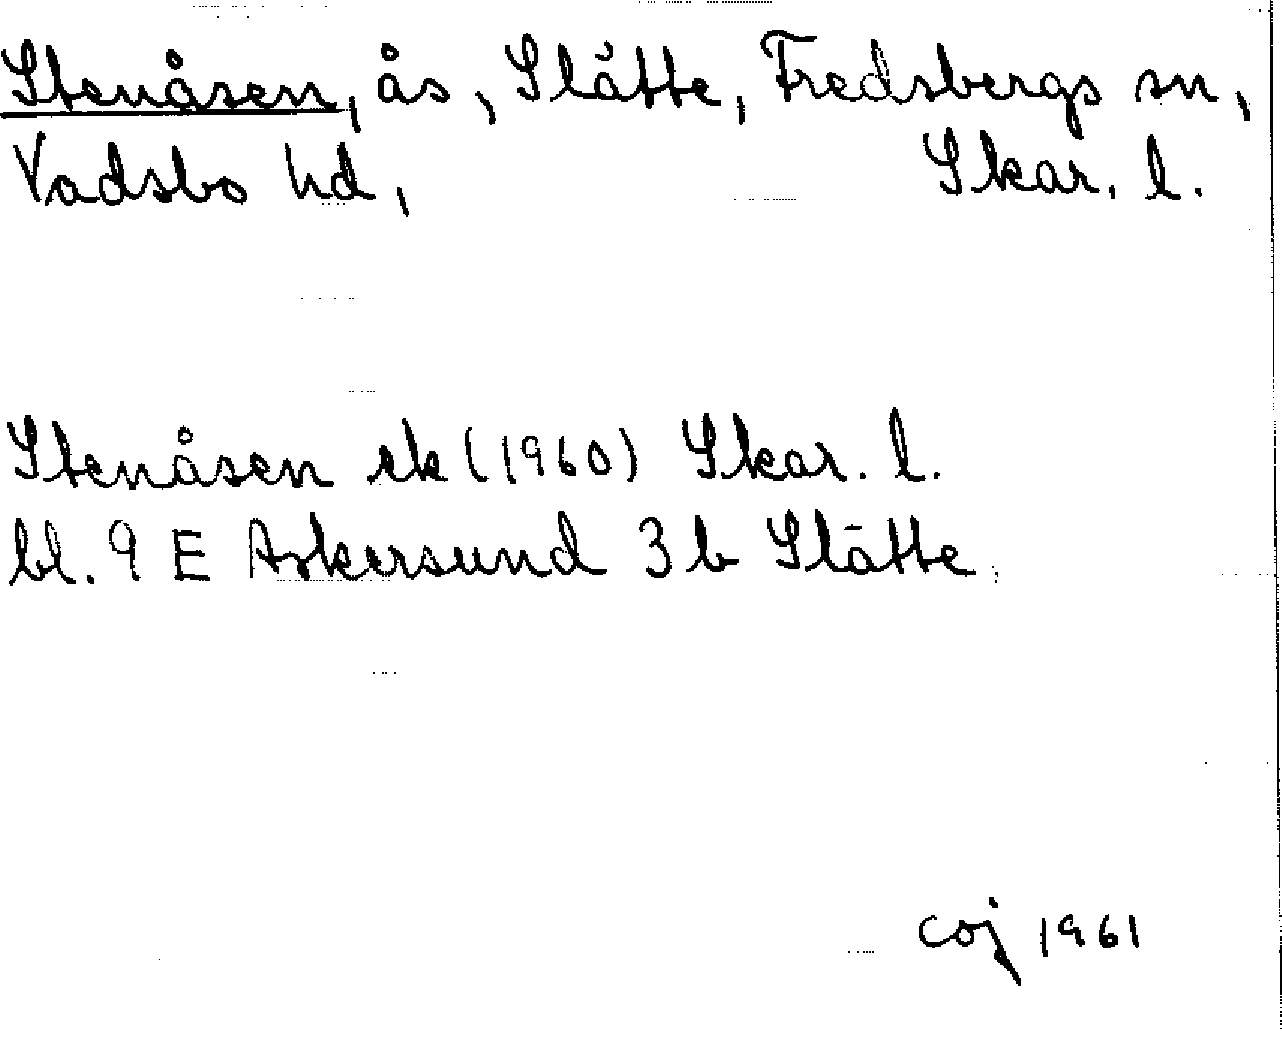 Stenåsen, ås, Slätte, Fredsbergs sn,
Vadsbo hd, Skar. l.
Stenåsen ek (1960) Skar. l.
bl. 9 E Askersund 3 b Slätte
coj 1961